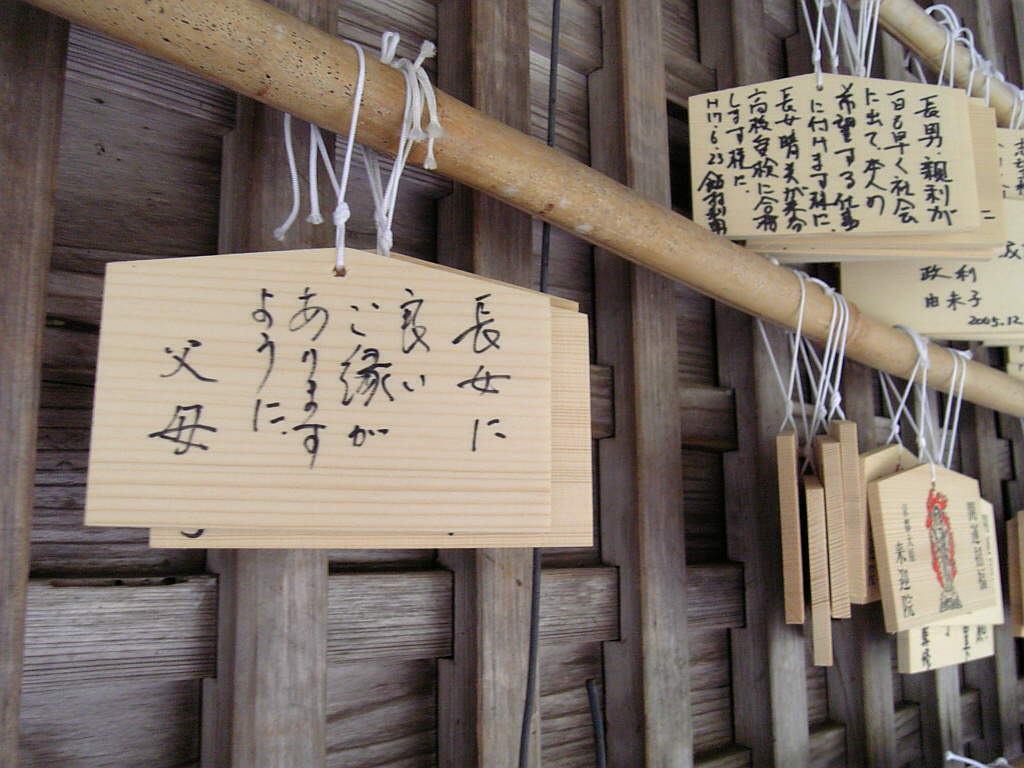 長女に
良い
ご縁が
あります
ように
父母
長男・親利が
一日も早く社会
に出て、本人の
希望する仕事
に付けます様に
長女 晴美が
高校受験に合格
します様に
H17.6.23
政利
由来子
2005.12
開運招福
来迎院